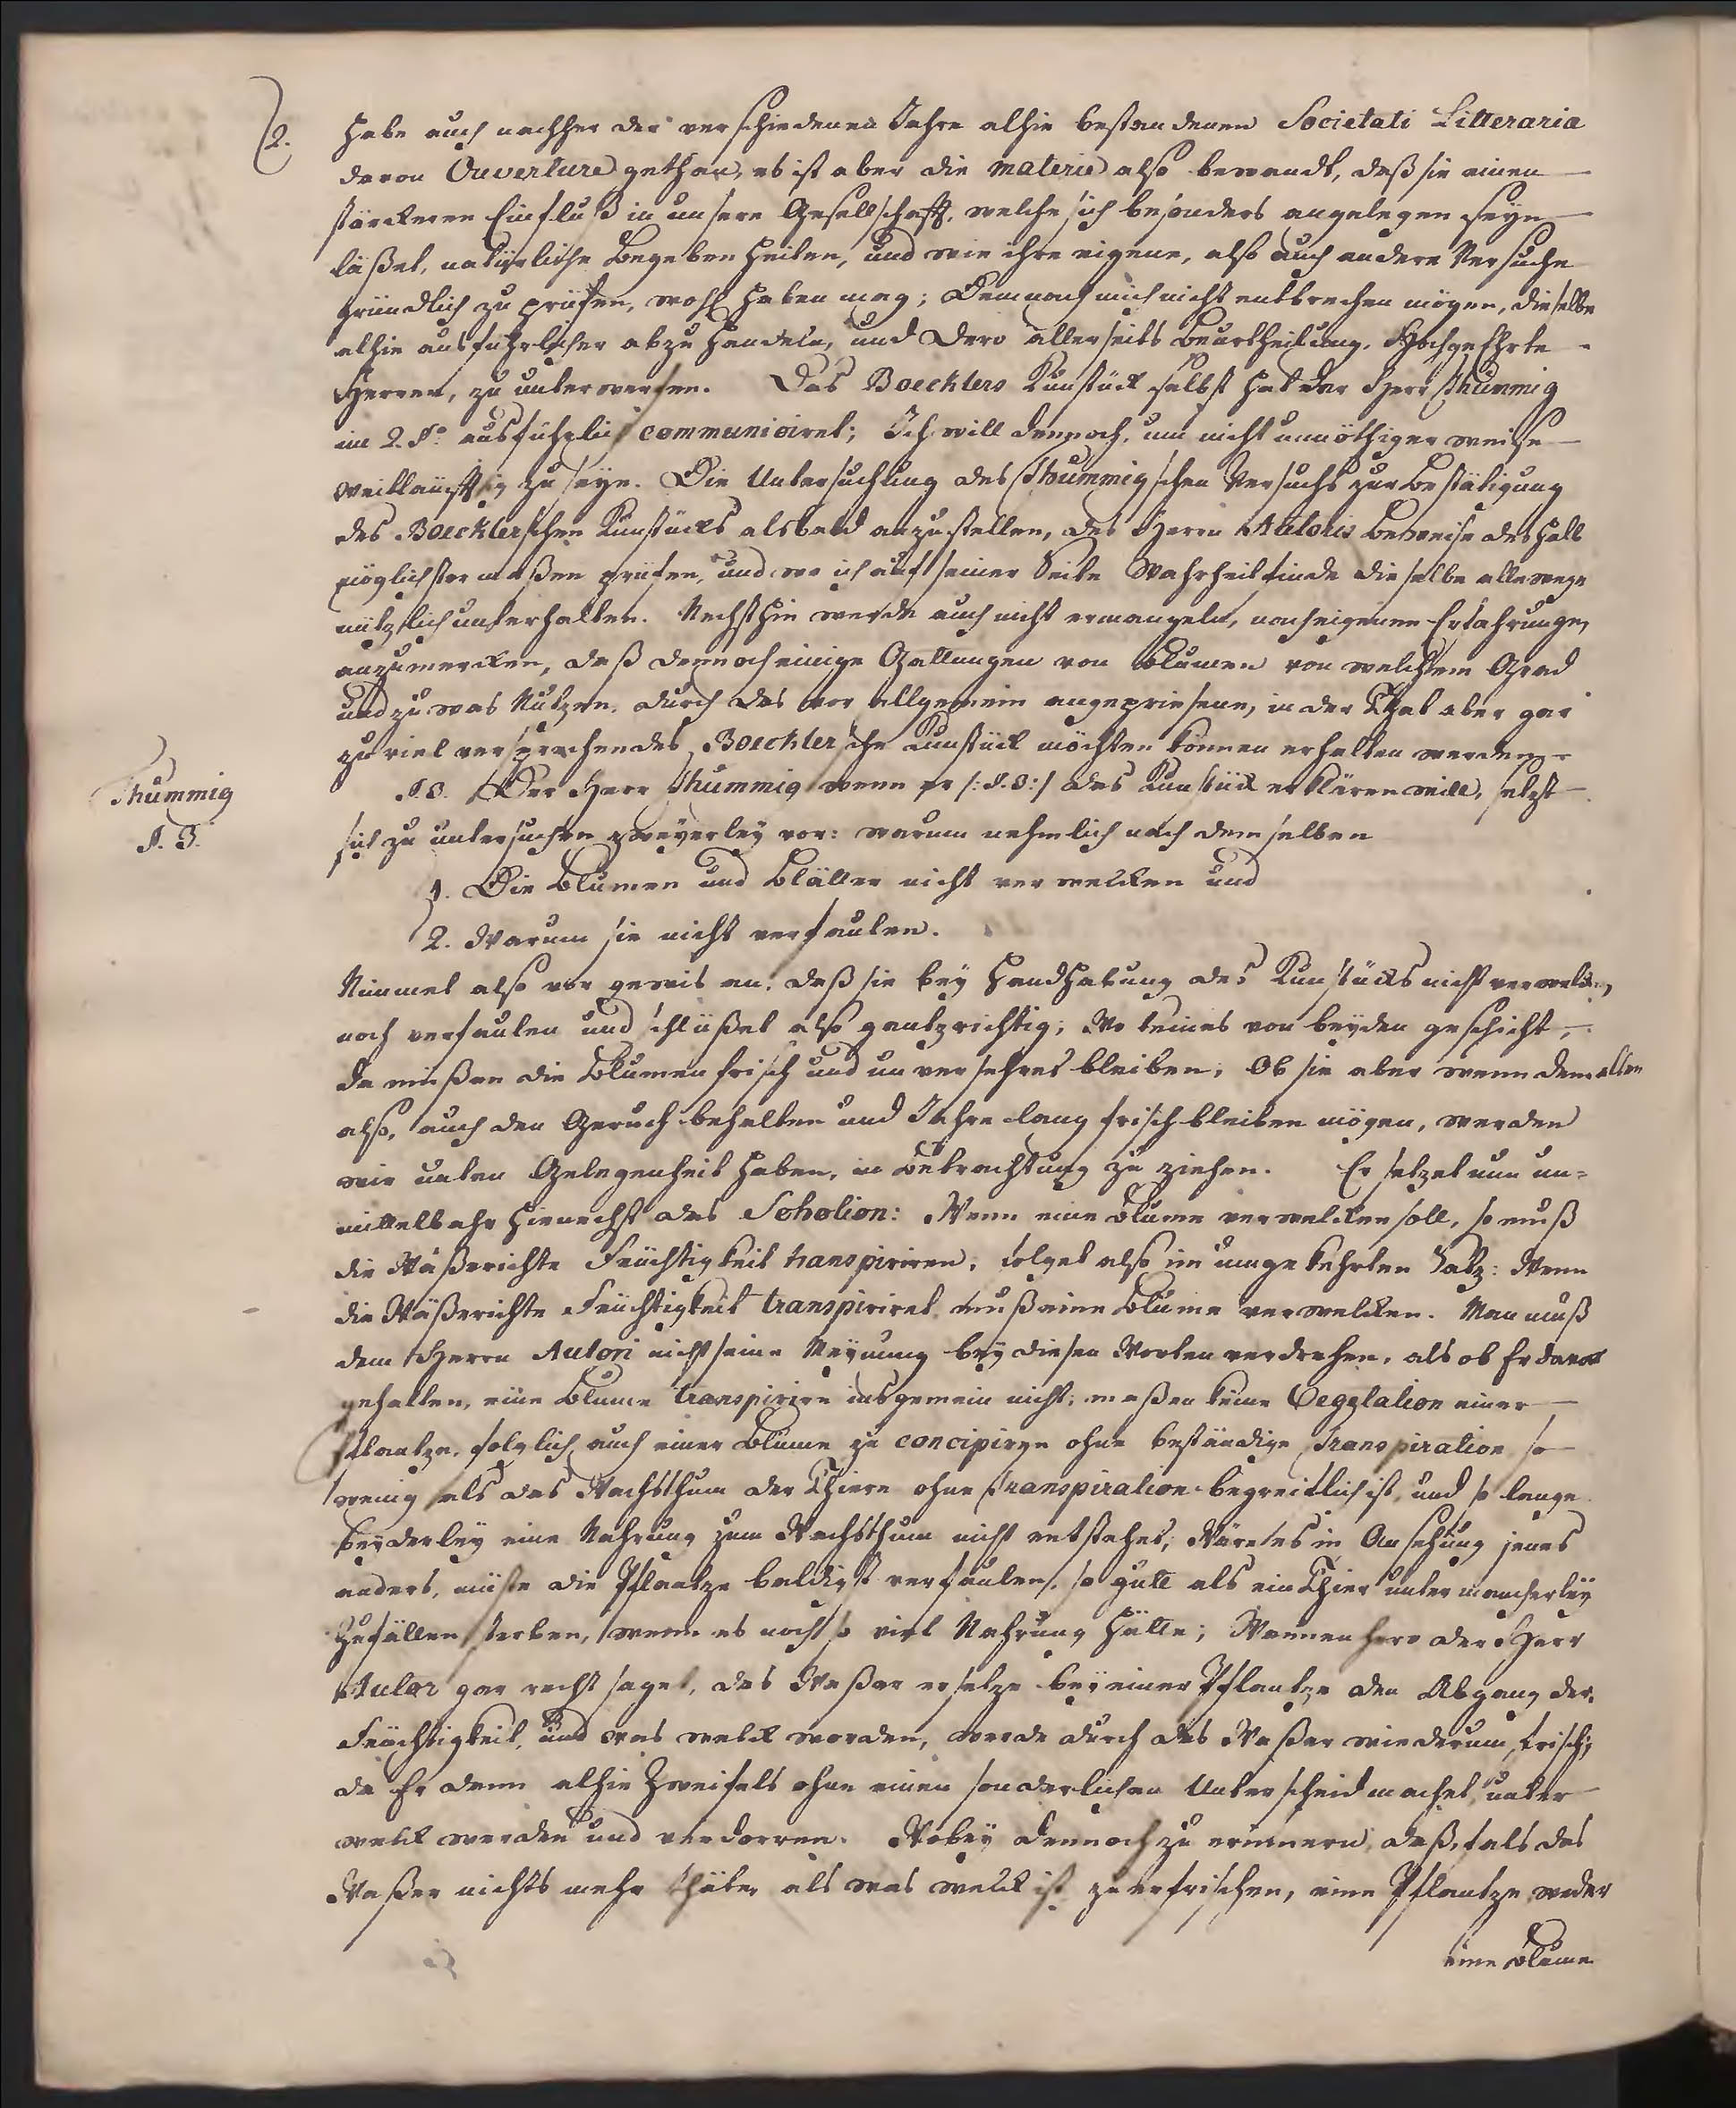 2.
habe auch nachher der verschiedene Jahre alhie bestandenen Societati Litteraria
davon Ouverture gethan, es ist aber die materie also bewandt, daß sie einen
stärckeren Einfluß in unsere Gesellschafft, welche sich besonders angelegen seyn
läßet, natürliche Begebenheiten, und wie ihre eigene, also auch andere Versuche
gründlich zu prüfen, wohl haben mag; Demnach mich nicht entbrechen mögen, dieselbe
alhie ausführlicher abzuhandeln, und Dero allerseits Beurtheilung, HochgeEhrte
Herren, zu unterwerfen. Das Boecklers Kunstück selbst hat der Herr Thümmig
im 2. §o ausführlich communiciret; Ich will dennoch, um nicht unnöthiger weise
weitläufftig zu seyn. Die Untersuchung des Thummigschen Versuchs zur Bestätigung
des Boecklerschen Kunstücks alsbald anzustellen, des Herrn Autoris Beweise deshalb
möglichster maßen prüfen, und wo ich auf seiner Seite Wahrheit finde dieselbe allewege
nützlich unterhalten. Nechsthin werde auch nicht ermangeln, nach eigenen Erfahrungen
anzumercken, daß dennoch einige Gattungen von Blumen von welchem Grad
und zu was Nutzen, durch das vor allgemein angepriesene, in der That aber gar
zu viel versprechendes Boecklersche Kunstück möchten können erhalten werden
Thümmig
§. 3.
§. 3. Der Herr Thummig wenn er /: §. 3 :/ das Kunstück erklären will, setzt
sich zu untersuchen zweyerley vor: warum nehmlich nach demselben
1. Die Blumen und Blätter nicht verwelcken und
2. Warum sie nicht verfaulen.
Nimmet also vor gewis an: daß sie bey Handhabung des Kunstücks nicht verwelcken,
noch verfaulen und schlüßet also gantz richtig; Wo keines von beyden geschicht,
da müßen die Blumen frisch und unversehret bleiben; Ob sie aber wenn dem allen
also, auch den Geruch behalten und Jahre lang frisch bleiben mögen, werden
wir unten Gelegenheit haben, in Betrachtung zu ziehen. Er setzet nun un-
mittelbahr hienechst das Scholion: Wenn eine Blume verwelcken soll, so muß
die Wäßerichte Feüchtigkeit transpiriren, folget also im umgekehrten Satz: Wenn
die Wäßerichte Feüchtigkeit transpiriret muß eine Blume verwelcken. Man muß
dem Herrn Autori nicht seine Meynung bey diesen Worten verdrehen, als ob Er davor
gehalten, eine Blume transpirire insgemein nicht; maßen keine Vegetation einer
Pflantze, folglich auch einer Blume zu concipiren ohne beständige Transpiration so
wenig als das Wachsthum der Thiere ohne Transpiration begreiflich ist, und so lange
beyderley eine Nahrung zum Wachsthum nicht entstehet; Wäre es in Ansehung jenes
anders, müste die Pflantze baldigst verfaulen, so gutt als ein Thier unter mancherley
Zufällen sterben, wenn es noch so viel Nahrung hätte; Wannenhero der Herr
Autor gar recht saget, das Waßer ersetze bey einer Pflantze den Abgang der
Feüchtigkeit, und was welck worden, werde durch das Waßer wiederum frisch;
da Er denn alhie Zweifels ohne einen sonderlichen Unterscheid machet, unter
welck werden und verdorren. Wobey dennoch zu erinnern, daß, fals das
Waßer nichts mehr thäte, als was welck ist zu erfrischen, eine Pflantze weder
eine Blume